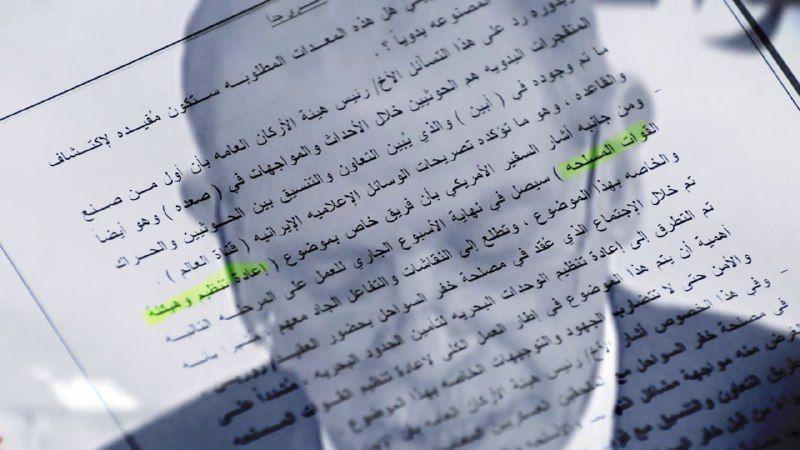 المصنوعه يدوياً ؟.
هل هذه المعدات المطلوبه ستكون مفيده لإكتشاف
بدوره رد على هذا التسأل الأخ/ رئيس هيئة الأركان العامه بأن أول من صنع
المتفجرات اليدويه هم الحوثيين خلال الأحداث والمواجهات في ( صعده ) وهو أيضاً
ما تم وجوده في ( أبين ) والذي يبين التعاون والتنسيق بين الحوثيين والحراك
والقاعده ، وهو ما تؤكده تصريحات الوسائل الإعلاميه الإيرانيه ( قناة العالم ) .
- ومن جانبه أشار السفير الأمريكي بأن فريق خاص بموضوع ( إعادة تنظيم وهيكلة
القوات المسلحه ) سيصل في نهاية الأسبوع الجاري للعمل على المرحله الثانيه
والخاصه بهذا الموضوع ، ونتطلع إلى النقاشات والتفاعل الجاد معهم
تم خلال الإجتماع الذي عقد في مصلحة خفر السواحل بحضور العقيد/
تم التطرق إلى إعادة تنظيم الوحدات البحريه لتأمين الحدود البحريه ،
أهمية أن يتم هذا الموضوع في إطار العمل الكلي لاعادة تنظيم القوات المسلحه
والأمن حتى لا تتضارب الجهود والتوجيهات الخاصه بهذا الموضوع
- وفي هذا الخصوص أشار الأخ/ رئيس هيئة الأركان العامه
في مصلحة خفر السواحل مع
منه مواجهة مشاكل
التعاون والتنسيق مع